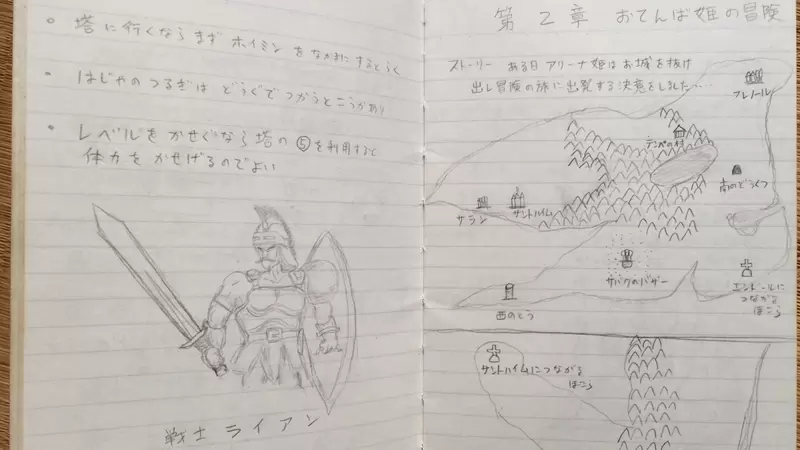 • 塔に行くならまず ホイミン を なかまにするとらく
• はじゃのつるぎは どうぐでつかうとこうかあり
• レベルをかせぐなら塔の⑤を利用すると
体力をかせげるのでよい
戦士 ライアン
第2章 おてんば姫の冒険
ストーリー ある日アリーナ姫はお城を抜け
出し冒険の旅に出発する決意をしました…
フレノール
テンペの村
南のどうくつ
サラン
サントハイム
サバクのバザー
エンドールに
つながる
ほこら
西のとう
サントハイムにつながる
ほこら